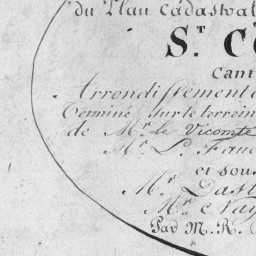 du Plan Cadastral
St. C
Cant
Arrondissement
Terminé sur le terrein
de Mr. le Vicomte
Mr. L.
et sous
Mr.
Mr.
Par M. R.